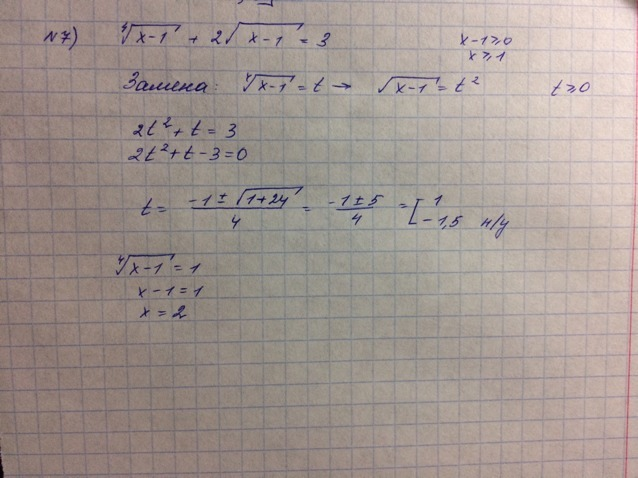 №7) ∜(x-1) + 2√(x-1) = 3 x-1≥0
x≥1
Замена: ∜(x-1) = t → √(x-1) = t² t≥0
2t² + t = 3
2t² + t - 3 = 0
t = (-1 ± √(1+24))/4 = (-1 ± 5)/4 = [ 1
-1,5 н/у
∜(x-1) = 1
x-1 = 1
x = 2